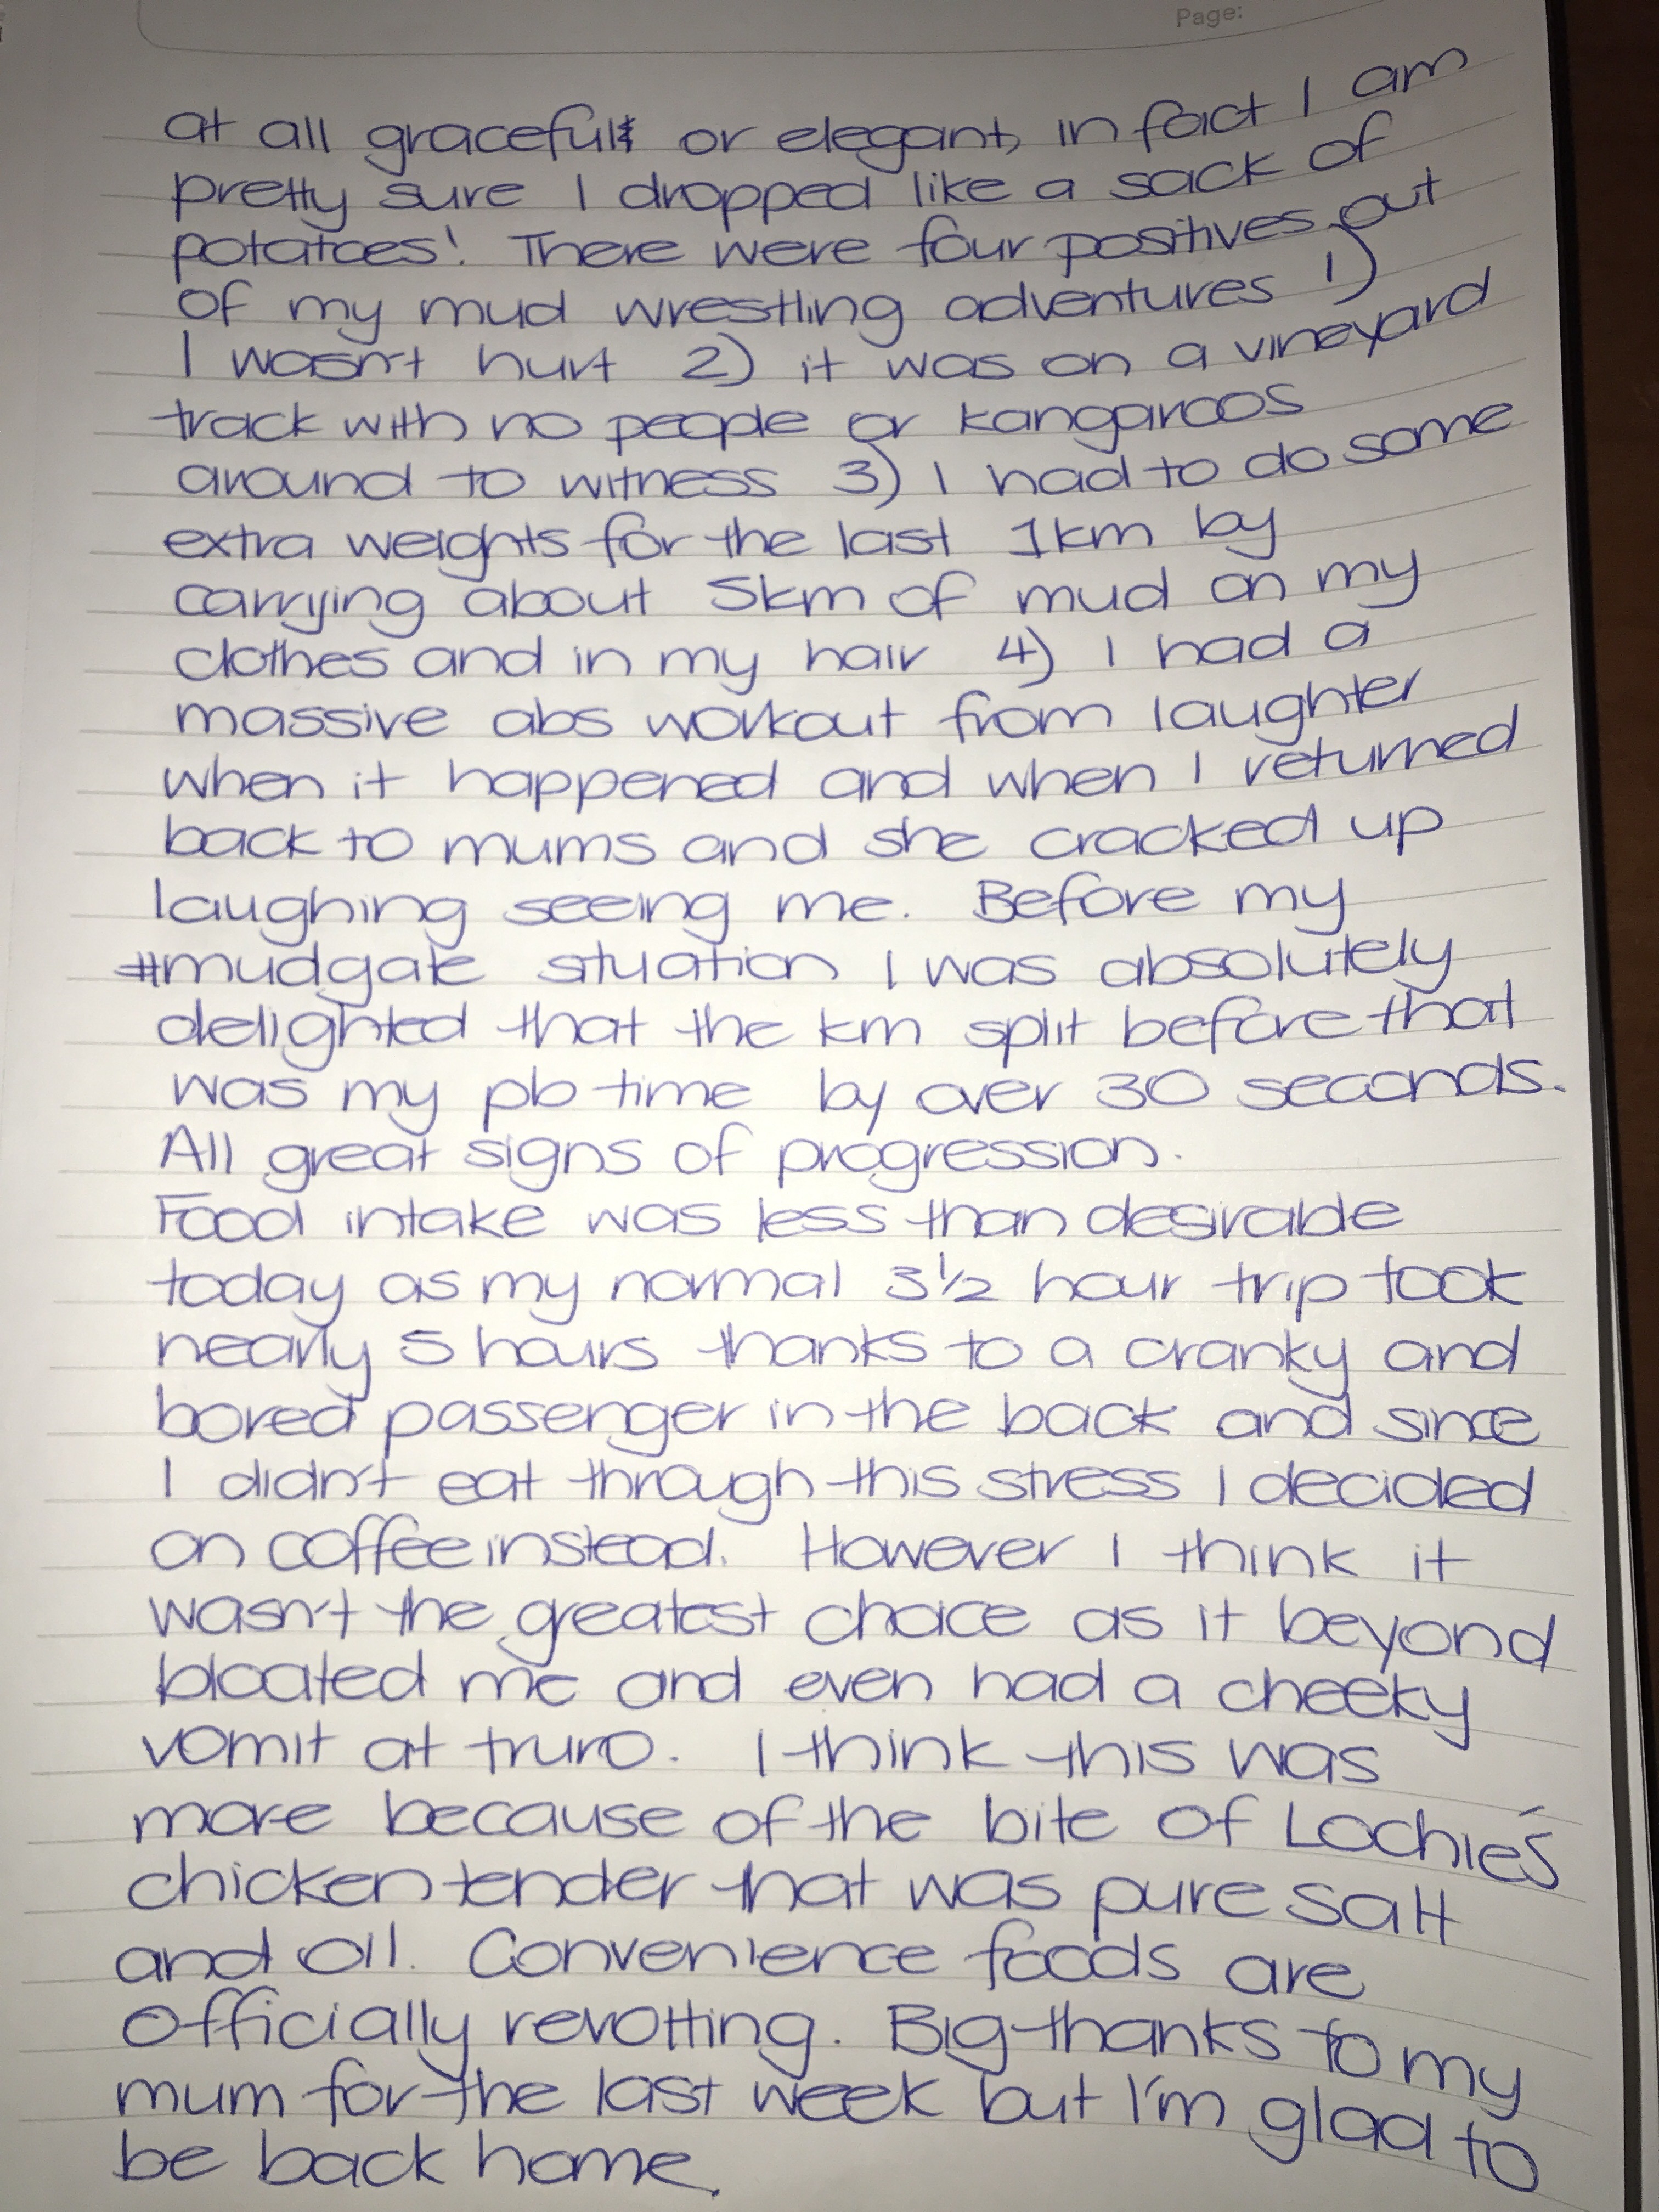 Page:
at all graceful or elegant, in fact I am
pretty sure I dropped like a sack of
potatoes! There were four positives out
of my mud wrestling adventures 1)
I wasn't hurt 2) it was on a vineyard
track with no people or kangaroos
around to witness 3) I had to do some
extra weights for the last 1km by
carrying about 5km of mud on my
clothes and in my hair 4) I had a
massive abs workout from laughter
when it happened and when I returned
back to mums and she cracked up
laughing seeing me. Before my
#mudgate situation I was absolutely
delighted that the km split before that
was my pb time by over 30 seconds.
All great signs of progression.
Food intake was less than desirable
today as my normal 3½ hour trip took
nearly 5 hours thanks to a cranky and
bored passenger in the back and since
I didn't eat through this stress I decided
on coffee instead. However I think it
wasn't the greatest choice as it beyond
bloated me and even had a cheeky
vomit at truro. I think this was
more because of the bite of Lochie's
chicken tender that was pure salt
and oil. Convenience foods are
officially revolting. Big thanks to my
mum for the last week but I'm glad to
be back home.